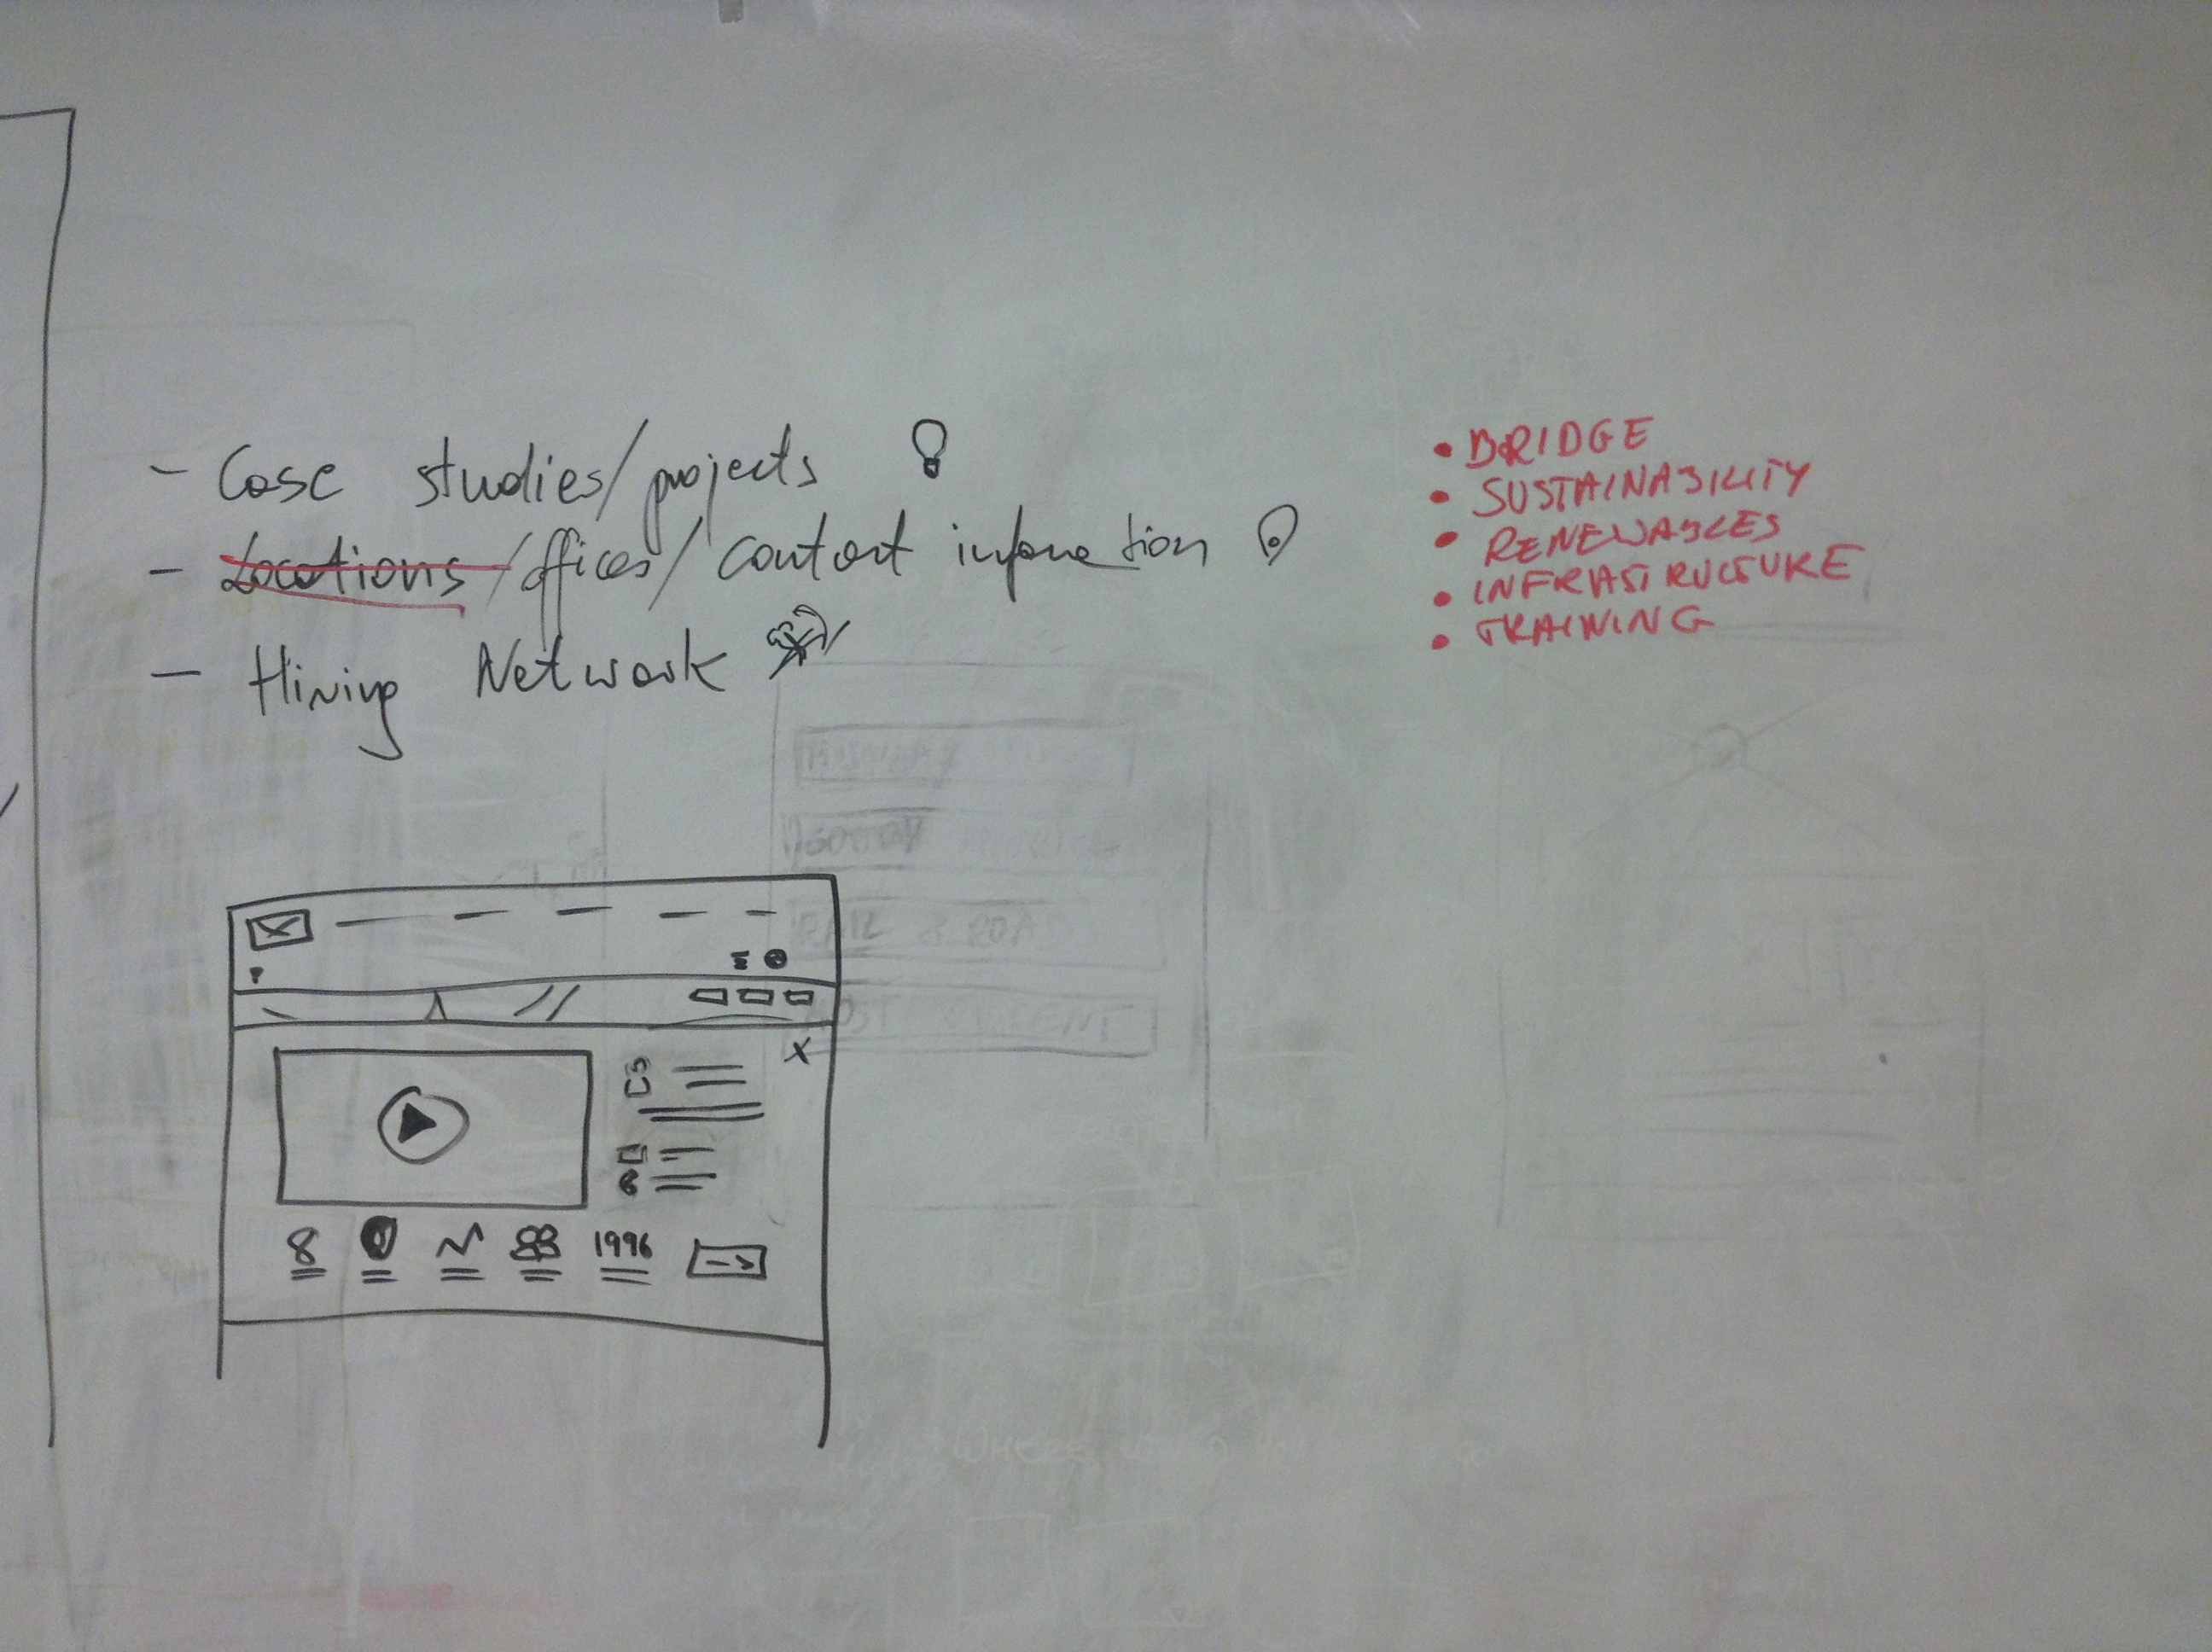 - Case studies/projects
- Locations/offices/contact information
- Hiring Network
• BRIDGE
• SUSTAINABILITY
• RENEWABLES
• INFRASTRUCTURE
• TRAINING
1996